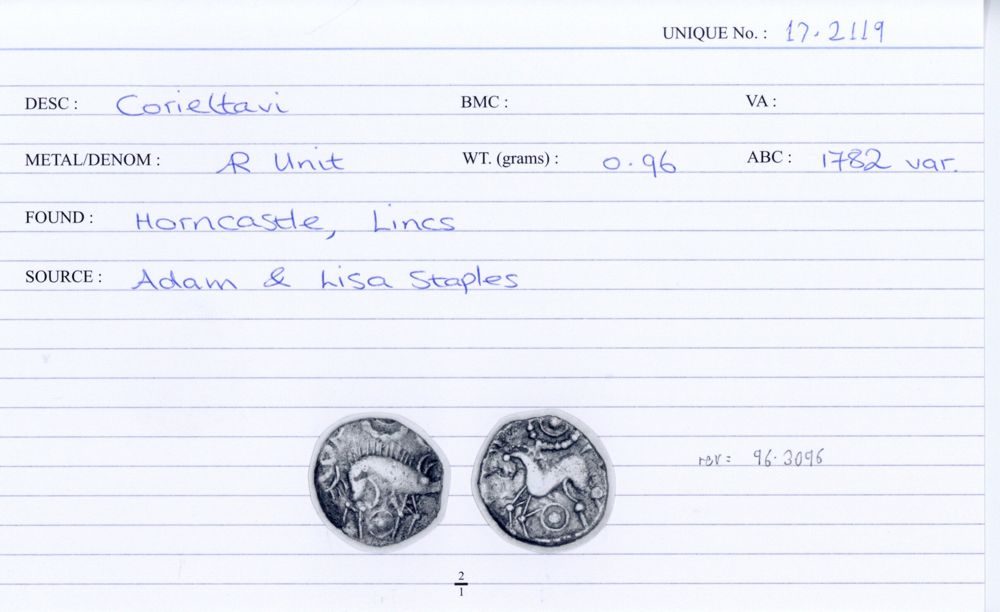 UNIQUE No. : 17.2119
DESC : Corieltavi BMC : VA :
METAL/DENOM : AR Unit WT. (grams) : 0.96 ABC : 1782 var.
FOUND : Horncastle, Lincs
SOURCE : Adam & Lisa Staples
rev = 96.3096
2
1